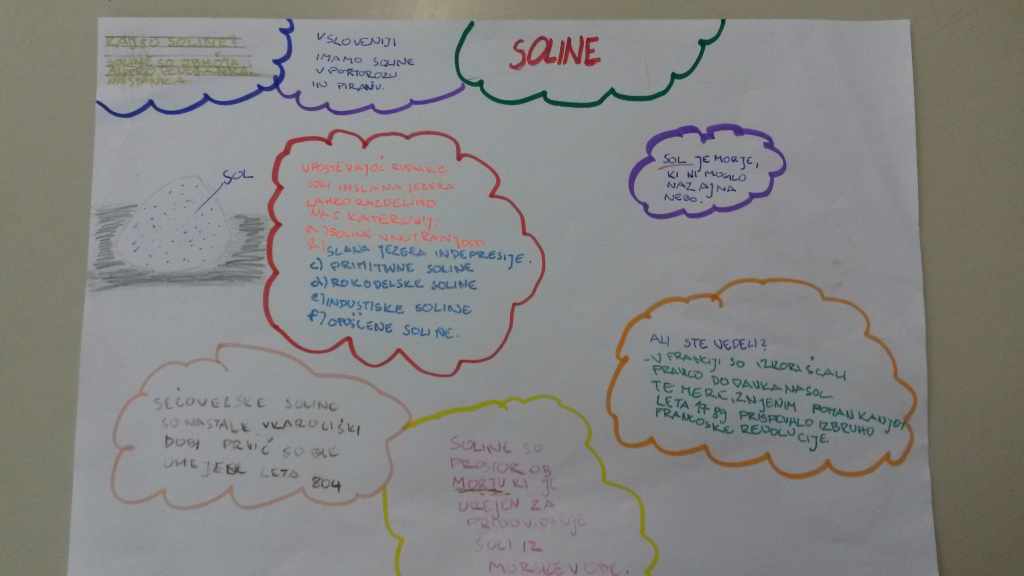 ZAKAJ SOLINE?
SOLINE SO OBMOČJA
V SLOVENIJI
IMAMO SOLINE
V PORTOROŽU
IN PIRANU.
SOLINE
SOL JE MORJE,
KI NI MOGLO
NAZAJ NA
NEBO.
SOL
UPOŠTEVAJOČ
SOLI IN SLANA JEZERA
LAHKO RAZDELIMO
a) SOLINE
b) SLANA JEZERA IN DEPRESIJE.
c) PRIMITIVNE SOLINE
d) ROKODELSKE SOLINE
e) INDUSTISKE SOLINE
f) OPUŠČENE SOLINE.
ALI STE VEDELI?
- V FRANCIJI SO IZKORIŠČALI
PRAVICO DO DAVKA NA SOL
TE MERE, Z NJENIM POMANKANJEM
LETA 1789 PRISPEVALO IZBRUHU
FRANCOSKE REVOLUCIJE
SEČOVELSKE SOLINE
SO NASTALE V KAROLIŠKI
DOBI PRVIČ SO BILE
OMENJENE LETA 804
SOLINE SO
PROSTOR OB
MORJU KI JE
UREJEN ZA
PRIDOBIVANJE
SOLI IZ
MORSKE VODE.